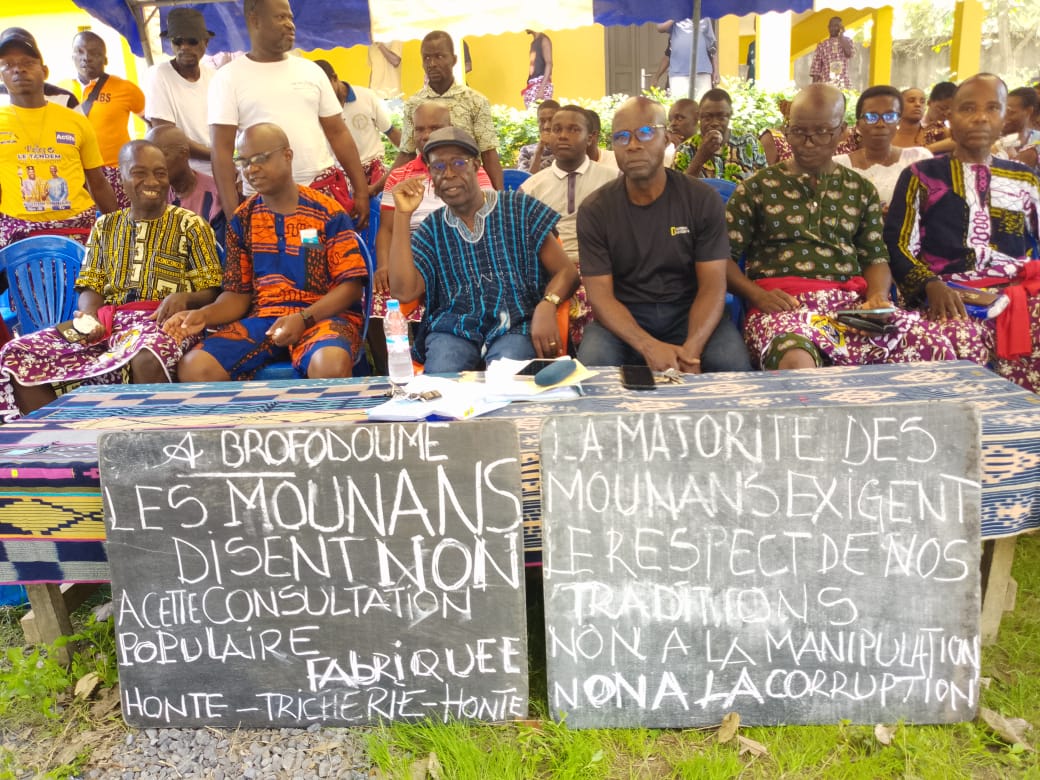 A BROFODOUME
LES MOUNANS
DISENT NON
A CETTE CONSULTATION
POPULAIRE
FABRIQUEE
HONTE - TRICHERIE - HONTE
LA MAJORITE DES
MOUNANS EXIGENT
LE RESPECT DE NOS
TRADITIONS
NON A LA MANIPULATION
NON A LA CORRUPTION
LE TANDEM